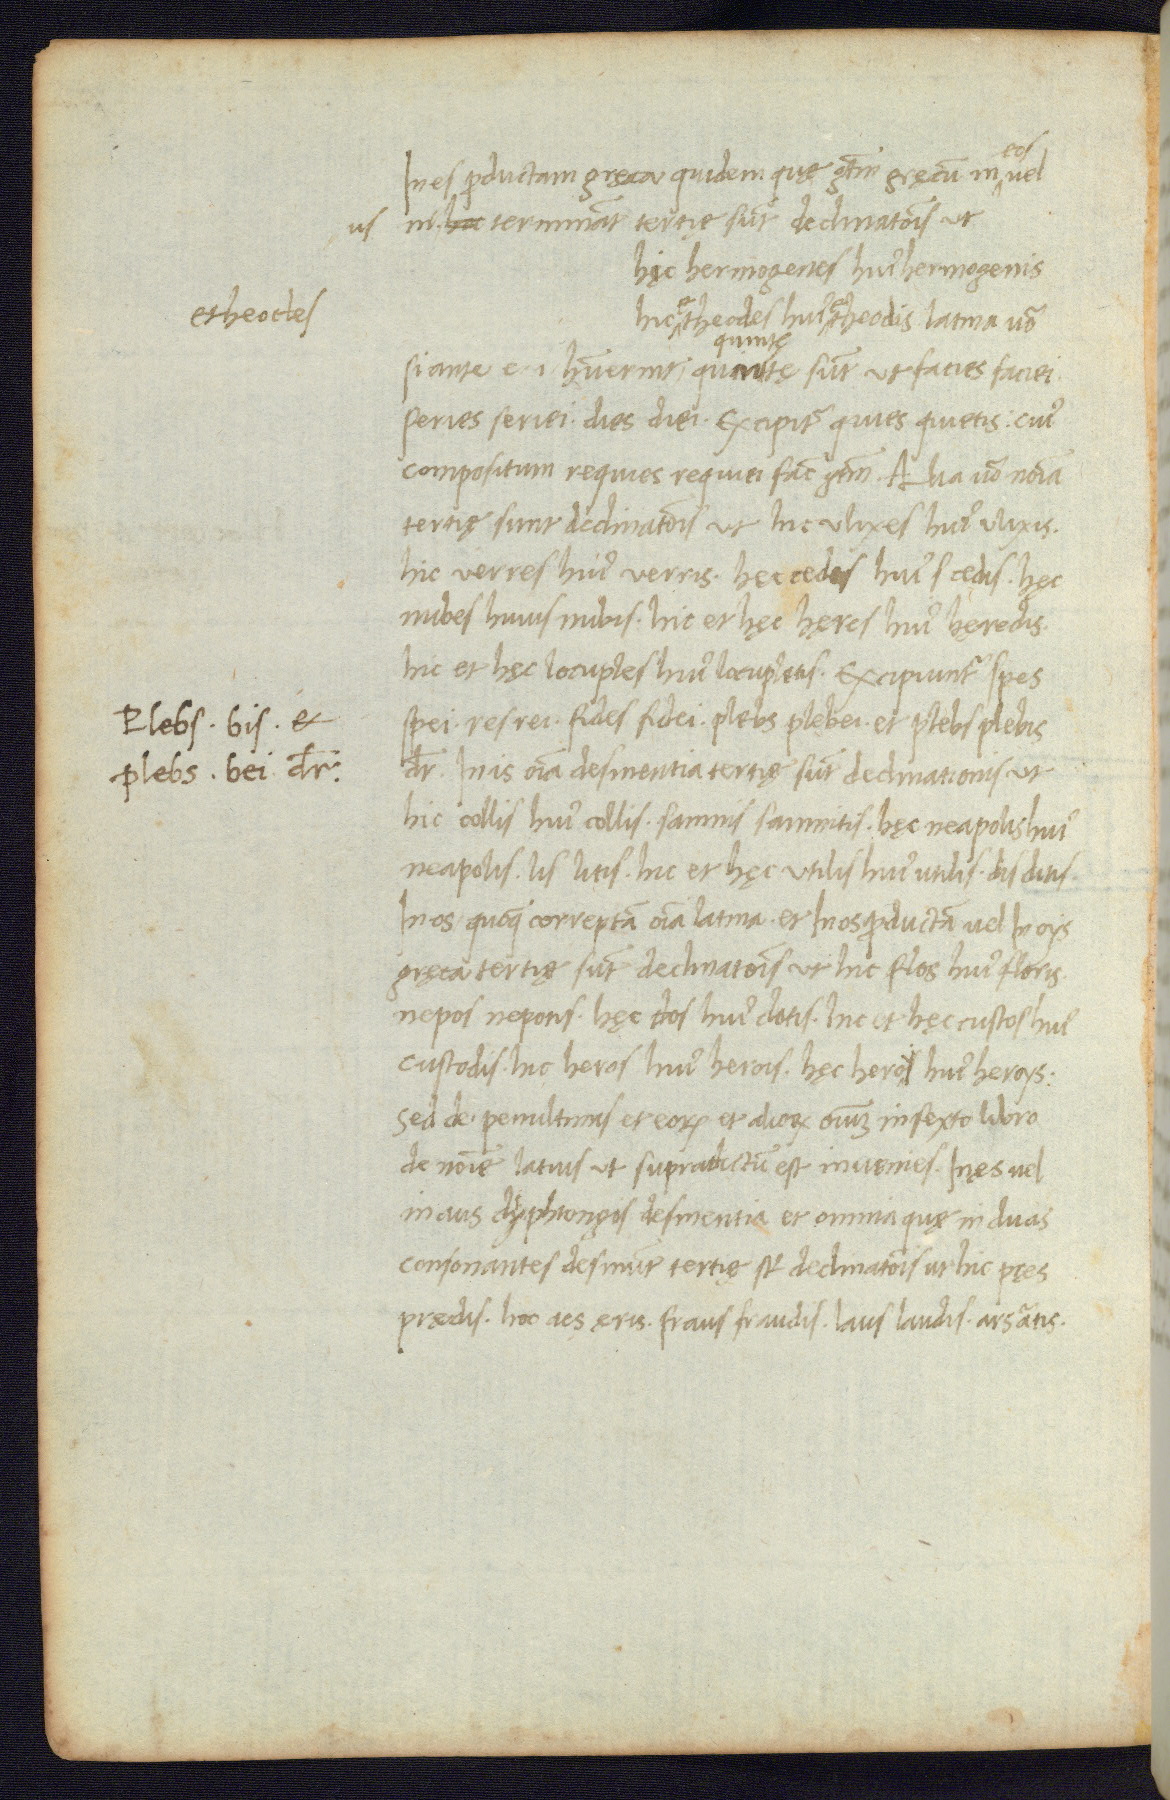 eos
In es p̄ductam gręca quidem quę gtm̄ gręcū in uel
us
in hac terminãt tertię sūt declinatōis ut
hic hermogenes huiꝰ hermogenis
etheocles
hic etheocles huiꝰ etheoclis latina uō
quintę
si ante e i hūerint quintę sūt ut facies faciei.
series seriei. dies diei. Excipitꝛ quies quietis: cuiꝰ
compositum requies requiei fac̄ gtm̄. Alia uō noīa
tertię sunt declinatōis ut hic vlixes huiꝰ vlixis.
hic verres huiꝰ verris. hęc cedes huiꝰ cędis. hęc
nubes huius nubis. hic et hęc hęres huiꝰ hęredis.
hic et hęc locuples huiꝰ locupletis. Excipiuntꝛ spes
Plebs. bis. et
spei. res rei. fides fidei. plebs plebei. et plebs plebis
plebs. bei dr̄:
dr̄. In is oīa desinentia tertię sūt declinationis ut
hic collis huiꝰ collis. samnis samnitis. hęc neapolis huiꝰ
neapolis. lis litis. hic et hęc utilis huiꝰ utilis. dis ditis.
In os quoq̄ correptā oīa latina. et In os p̄ductā uel In oys
gręca tertię sūt declinatōis ut hic flos huiꝰ floris.
nepos nepotis. hęc dos huiꝰ dotis. hic et hęc custos huiꝰ
custodis. hic heros huiꝰ herois. hęc herois huiꝰ heroys:
sed de penultimis et eoꝝ et alioꝝ oīuꝫ in sexto libro
de noīe latius ut supradictū est inuenies. In ęs uel
in aus dyphtongis desinentia et omnia quę in duas
consonantes desinūt tertię st̄ declinatōis ut hic pręs
prędis. hoc aes ęris. fraus fraudis. laus laudis. ars artis.